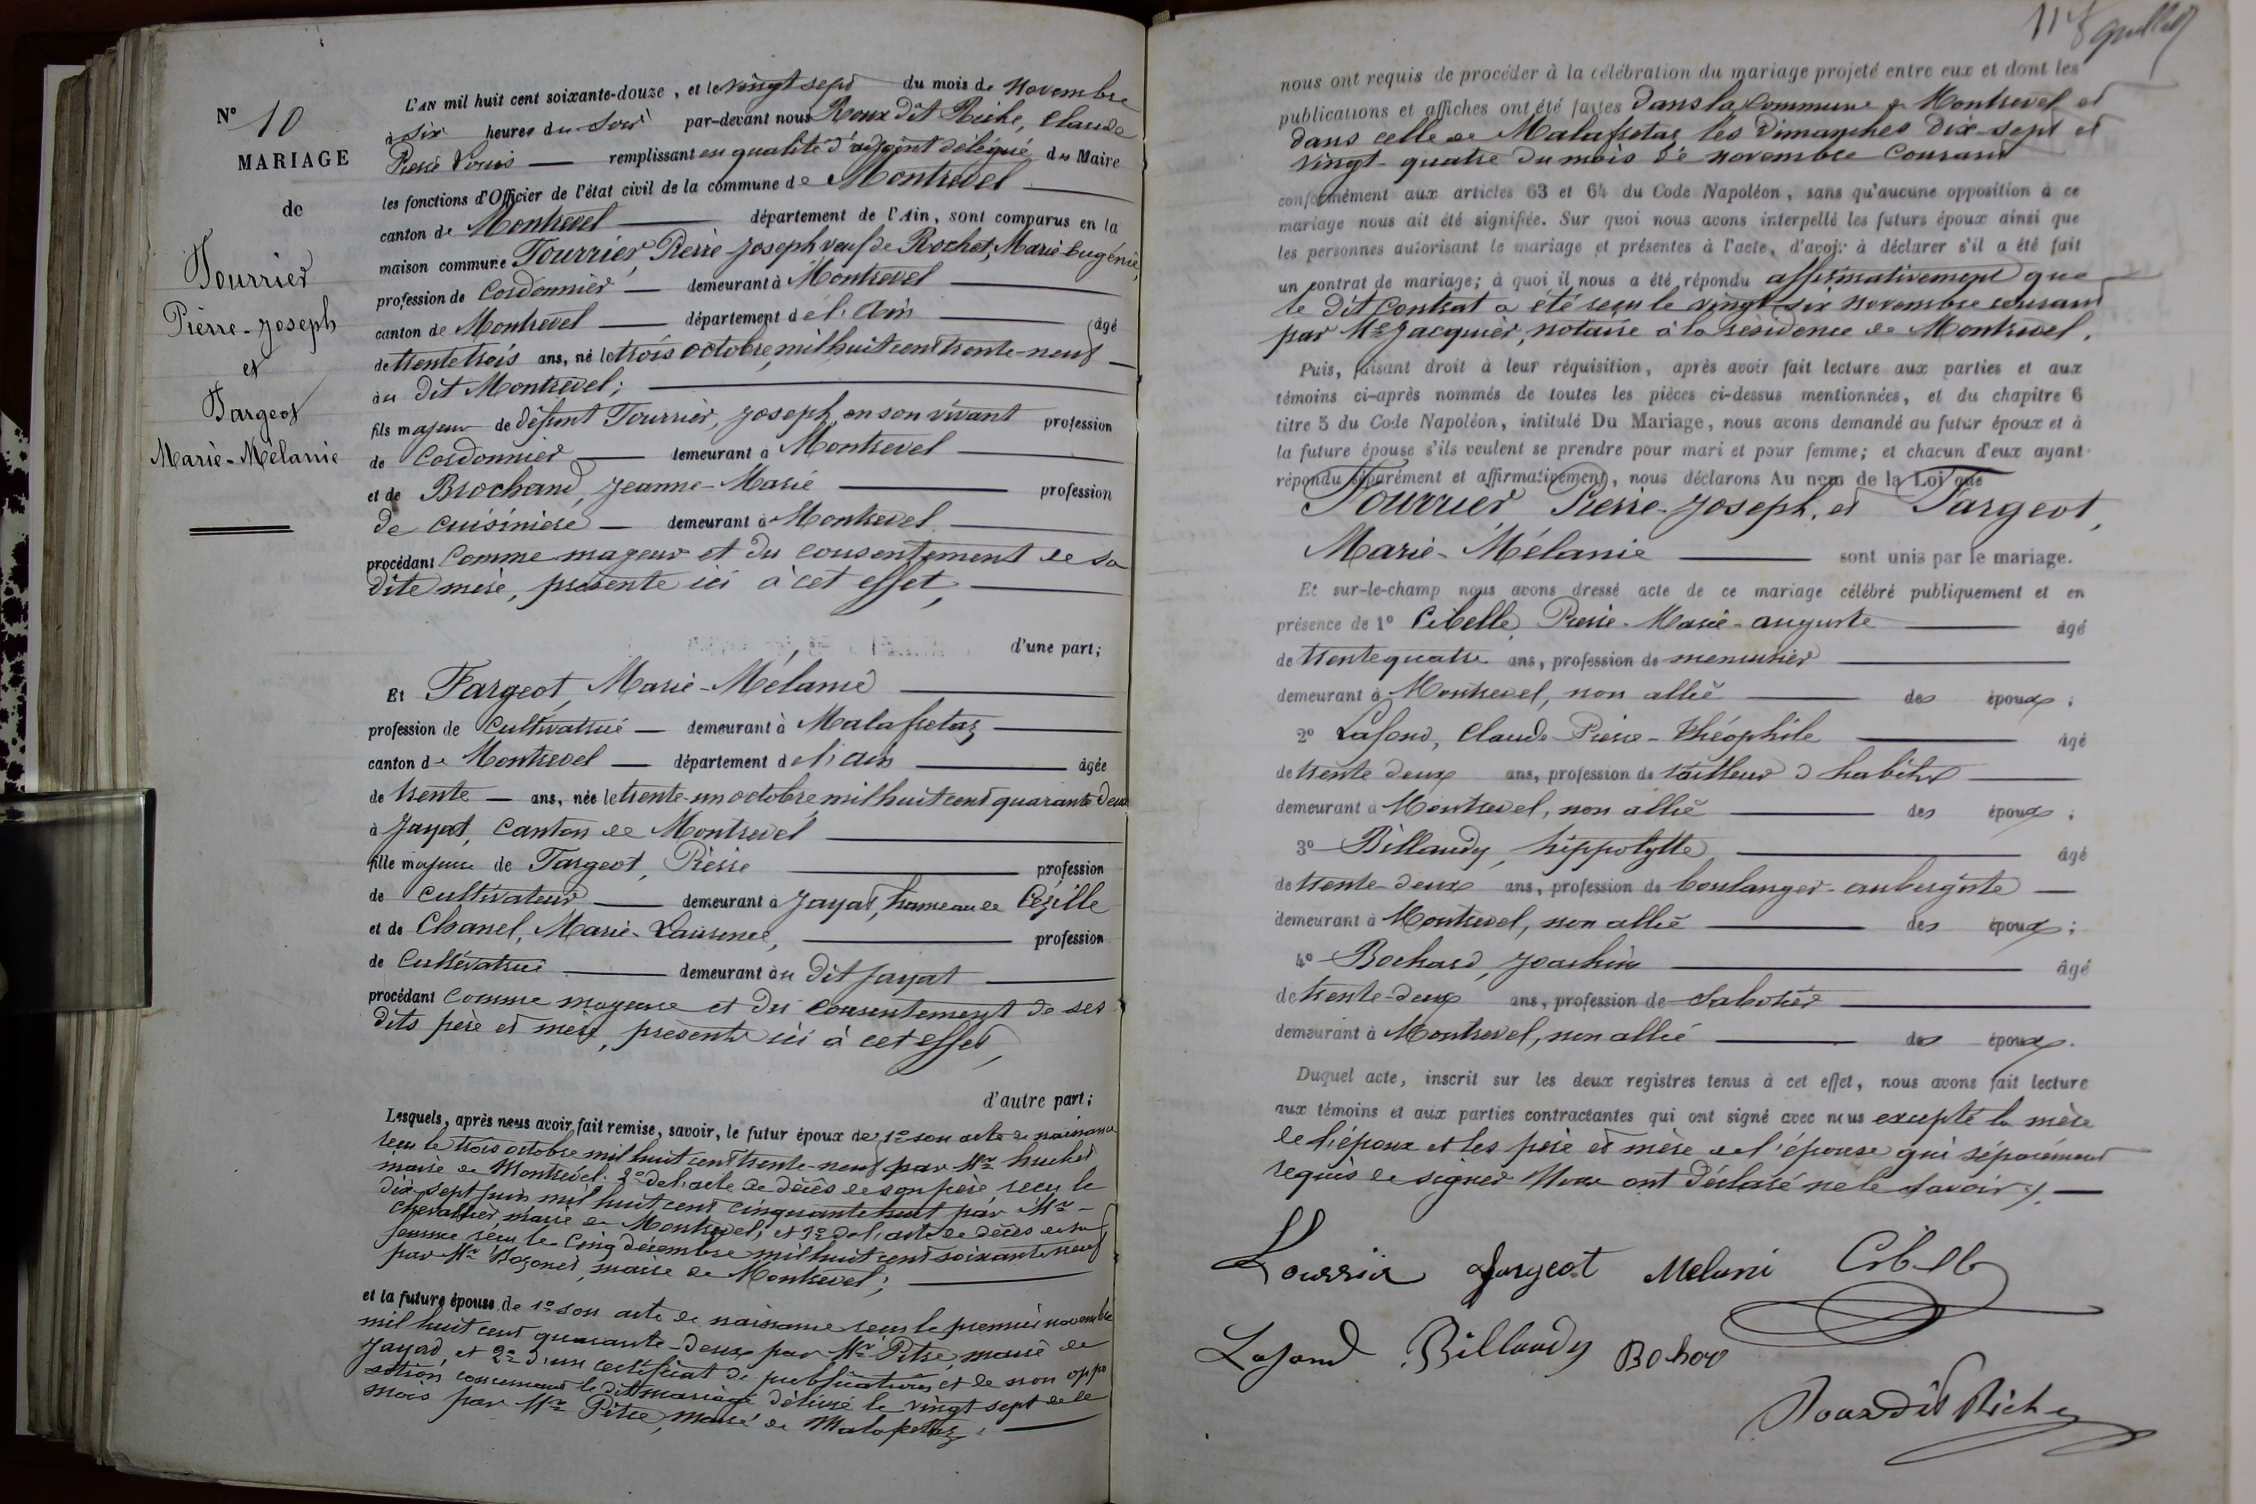 N° 10
MARIAGE
de
Fourrier
Pierre-Joseph
et
Fargeot
Marie-Mélanie
L'AN mil huit cent soixante-douze, et le vingt sept du mois de Novembre
à six heures du soir par-devant nous Roux dit Riche, Claude
Pierre Louis remplissant en qualité d'adjoint délégué du Maire
les fonctions d'Officier de l'état civil de la commune de Montrevel
canton de Montrevel département de l'Ain, sont comparus en la
maison commune Fourrier, Pierre Joseph veuf de Rochet, Marie Eugénie,
profession de Cordonnier demeurant à Montrevel
canton de Montrevel département de l'Ain âgé
de trente trois ans, né le trois octobre, mil huit cent trente-neuf
au dit Montrevel;
fils majeur de défunt Fourrier, Joseph, en son vivant profession
de Cordonnier demeurant à Montrevel
et de Brochand, Jeanne-Marie profession
de cuisinière demeurant à Montrevel
procédant Comme majeur et du consentement de sa
dite mère, présente ici à cet effet,
d'une part;
Et Fargeot, Marie-Mélanie
profession de Cultivatrice demeurant à Malafretaz
canton de Montrevel département de l'ain âgée
de trente ans, née le trente-un octobre mil huit cent quarante deux
à Jayat, canton de Montrevel
fille majeure de Fargeot, Pierre profession
de cultivateur demeurant à Jayat, hameau de Cézille
et de Chanel, Marie-Laurence, profession
de Cultivatrice demeurant au dit Jayat
procédant Comme majeure et du consentement de ses
dits père et mère, présents ici à cet effet,
d'autre part;
Lesquels, après nous avoir fait remise, savoir, le futur époux de 1° son acte de naissance
reçu le trois octobre mil huit cent trente-neuf par Mr huchet
maire de Montrevel: 2° de l'acte de décès de son père, reçu le
dix-sept juin mil huit cent cinquante huit par Mr
Chevallier, maire de Montrevel; et 3° de l'acte de décès de sa
femme reçu le Cinq décembre mil huit cent soixante neuf
par Mr Bozonet, maire de Montrevel;
et la future épouse de 1° son acte de naissance reçu le premier novembre
mil huit cent quarante-deux par Mr Pitre, maire de
Jayat, et 2° d'un certificat de publications et de non oppo
sition concernant le dit mariage délivré le vingt sept de ce
mois par Mr Pitre, maire de Malafretaz;
nous ont requis de procéder à la célébration du mariage projeté entre eux et dont les
publications et affiches ont été faites dans la Commune de Montrevel et
dans celle de Malafretaz les Dimanches dix-sept et
vingt-quatre du mois de novembre Courant
conformément aux articles 63 et 64 du Code Napoléon, sans qu'aucune opposition à ce
mariage nous ait été signifiée. Sur quoi nous avons interpellé les futurs époux ainsi que
les personnes autorisant le mariage et présentes à l'acte, d'avoir à déclarer s'il a été fait
un contrat de mariage; à quoi il nous a été répondu affirmativement que
le dit Contrat a été reçu le vingt-six novembre courant
par Me Jacquier, notaire à la résidence de Montrevel.
Puis, faisant droit à leur réquisition, après avoir fait lecture aux parties et aux
témoins ci-après nommés de toutes les pièces ci-dessus mentionnées, et du chapitre 6
titre 5 du Code Napoléon, intitulé Du Mariage, nous avons demandé au futur époux et à
la future épouse s'ils veulent se prendre pour mari et pour femme; et chacun d'eux ayant
répondu séparément et affirmativement, nous déclarons Au nom de la Loi que
Fourrier Pierre-Joseph, et Fargeot,
Marie-Mélanie sont unis par le mariage.
Et sur-le-champ nous avons dressé acte de ce mariage célébré publiquement et en
présence de 1° Cibelle, Pierre-Marie-auguste âgé
de trente quatre ans, profession de menuisier
demeurant à Montrevel, non allié des époux;
2° Lafond, Claude-Pierre-Théophile âgé
de trente deux ans, profession de tailleur d'habits
demeurant à Montrevel, non allié des époux;
3° Billaudy, hippolytte âgé
de trente-deux ans, profession de boulanger-aubergiste
demeurant à Montrevel, non allié des époux;
4° Bochard, Joachim âgé
de trente-deux ans, profession de Sabotier
demeurant à Montrevel, non allié des époux.
Duquel acte, inscrit sur les deux registres tenus à cet effet, nous avons fait lecture
aux témoins et aux parties contractantes qui ont signé avec nous excepté la mère
de l'époux et les père et mère de l'épouse qui séparément
requis de signer Nous ont déclaré ne le savoir %.
Fourrier fargeot Melani Cibelle
Lafond Billaudy Bochar
Roux dit Riche